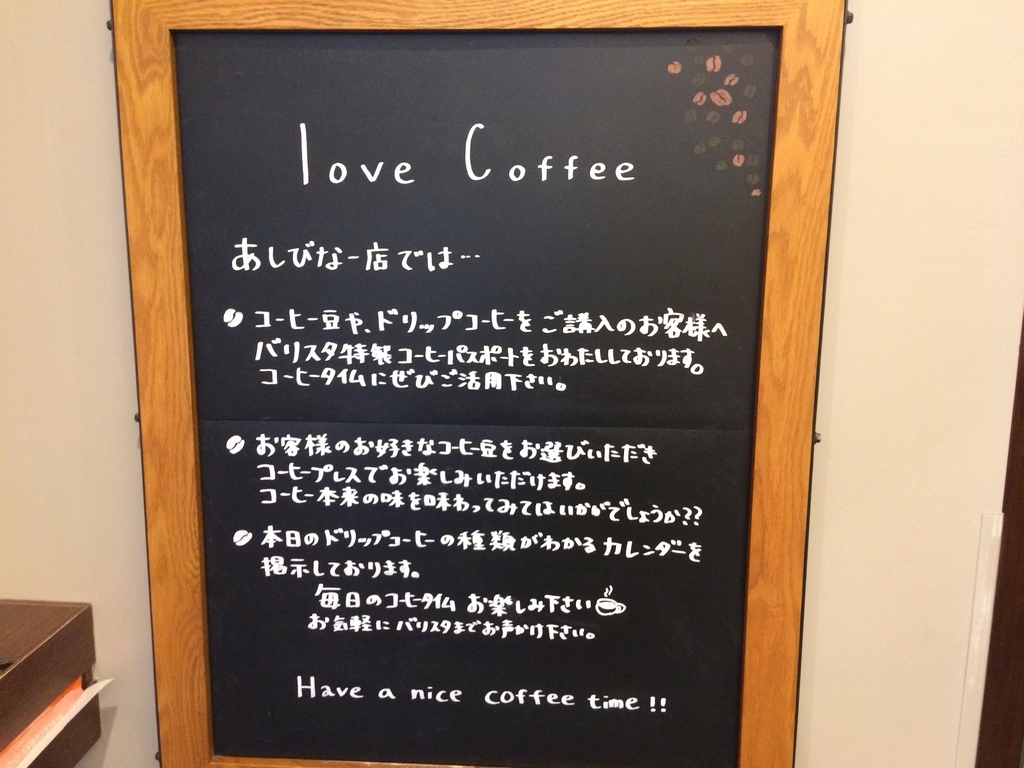 love Coffee
あしびなー店では…
コーヒー豆や、ドリップコーヒーをご購入のお客様へ
バリスタ特製コーヒーパスポートをおわたししております。
コーヒータイムにぜひご活用下さい。
お客様のお好きなコーヒー豆をお選びいただき
コーヒープレスでお楽しみいただけます。
コーヒー本来の味を味わってみてはいかがでしょうか??
本日のドリップコーヒーの種類がわかるカレンダーを
掲示しております。
毎日のコーヒータイム お楽しみ下さい
お気軽にバリスタまでお声がけ下さい。
Have a nice coffee time!!